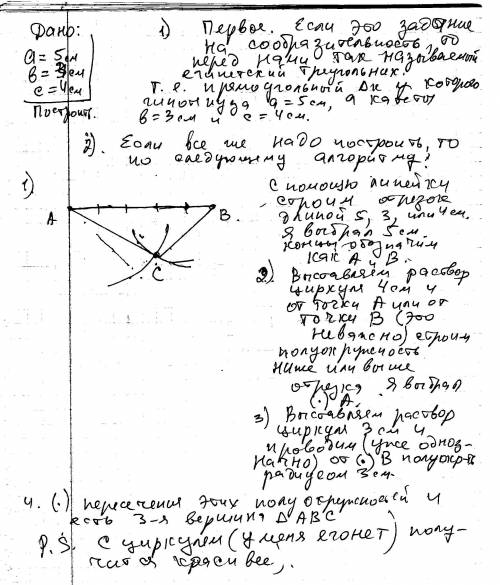 Дано:
a = 5см
в = 3см
c = 4см
Построить.
1) Первое. Если это задание
на сообразительность, то
перед нами так называемой
египетский треугольник.
Т.е. прямоугольный Δк у которого
гипотенуза a = 5см, а катеты
в = 3см и c = 4см.
2). Если все же надо построить, то
по следующему алгоритму:
1)
A
B.
C
С помощью линейки
строим отрезок
длиной 5, 3, или 4см.
Я выбрал 5см.
концы обозначим
как A и B.
2) Выставляем раствор
циркуля 4см и
от точки A или от
точки B (это
неважно) строим
полуокружность
ниже или выше
отрезка. Я выбрал
(.) A.
3) Выставляем раствор
циркуля 3см и
проводим (уже одноз-
начно) от (.) B полуокр-ть
радиусом 3см.
4. (.) пересечения этих полуокружностей и
есть 3-я вершина Δ ABC
P.S. С циркулем (у меня его нет) полу-
чится красивее,.